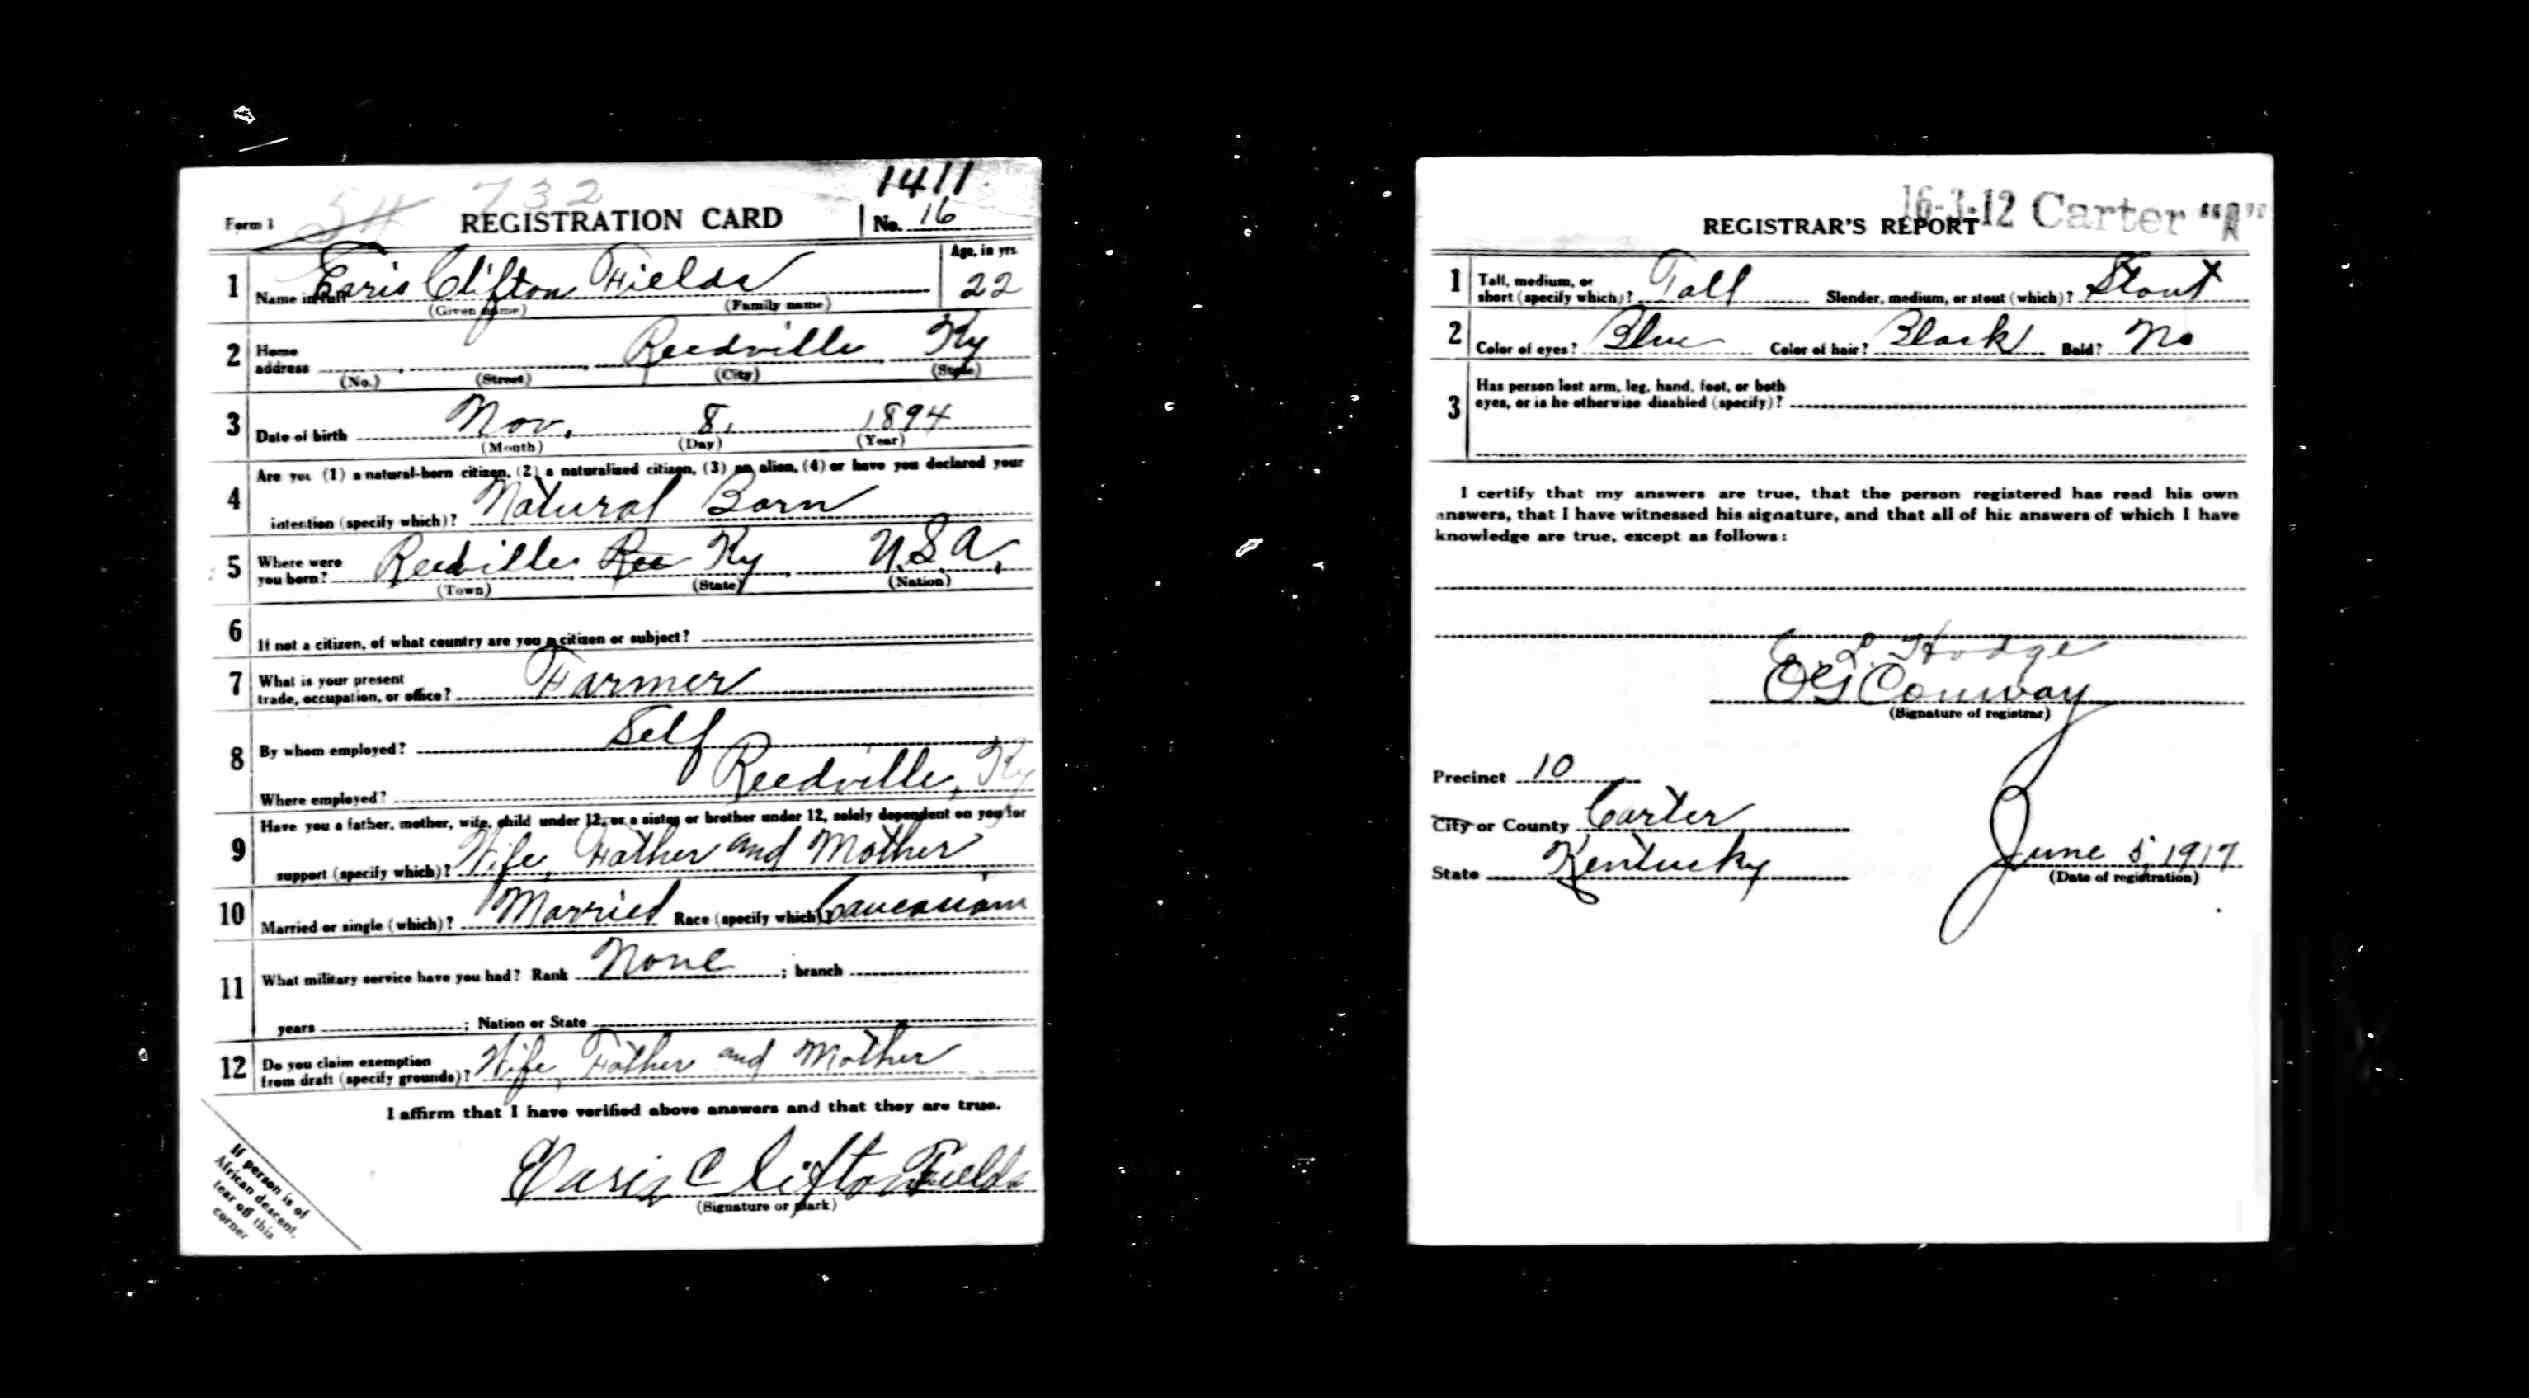 732
1411
Form 1 REGISTRATION CARD No. 16
1 Name in full Earis Clifton Fields Age, in yrs. 22
(Given name) (Family name)
2 Home address Reedville Ky
(No.) (Street) (City) (State)
3 Date of birth Nov. 8, 1894
(Month) (Day) (Year)
4 Are you (1) a natural-born citizen, (2) a naturalized citizen, (3) an alien, (4) or have you declared your
intention (specify which)? Natural Born
5 Where were you born? Reedville Ree Ky U.S.A.
(Town) (State) (Nation)
6 If not a citizen, of what country are you a citizen or subject?
7 What is your present
trade, occupation, or office? Farmer
8 By whom employed? Self
Where employed? Reedville, Ky
9 Have you a father, mother, wife, child under 12, or a sister or brother under 12, solely dependent on you for
support (specify which)? Wife, Father and Mother
10 Married or single (which)? Married Race (specify which)? Caucasian
11 What military service have you had? Rank None ; branch
years ; Nation or State
12 Do you claim exemption
from draft (specify grounds)? Wife, Father and Mother
I affirm that I have verified above answers and that they are true.
Earis Clifton Fields
(Signature or mark)
If person is of
African descent,
tear off this
corner
16-3-12 Carter "A"
REGISTRAR'S REPORT
1 Tall, medium, or
short (specify which)? Tall Slender, medium, or stout (which)? Stout
2 Color of eyes? Blue Color of hair? Black Bald? No
3 Has person lost arm, leg, hand, foot, or both
eyes, or is he otherwise disabled (specify)?
I certify that my answers are true, that the person registered has read his own
answers, that I have witnessed his signature, and that all of his answers of which I have
knowledge are true, except as follows:
E. L. Hodge
O G Conway
(Signature of registrar)
Precinct 10
City or County Carter
State Kentucky
June 5, 1917
(Date of registration)